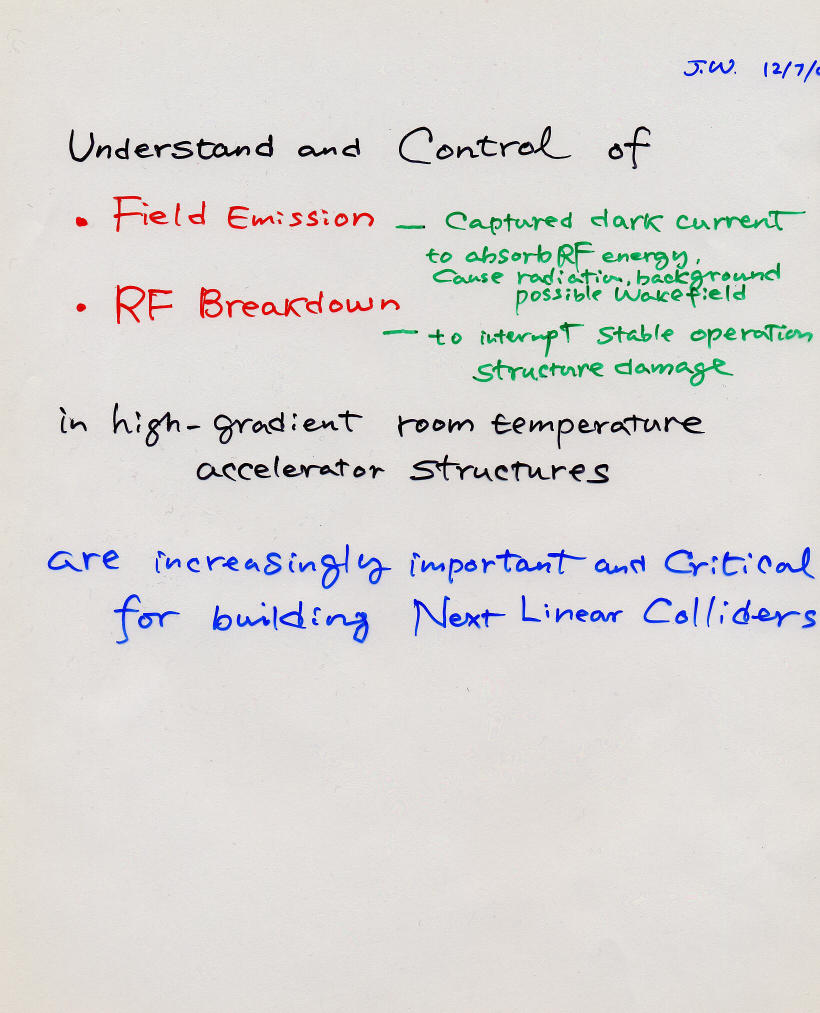 J.W. 12/7/
Understand and Control of
• Field Emission — Captured dark current
to absorb RF energy,
Cause radiation, background
possible Wakefield
• RF Breakdown
— to interrupt Stable operation
Structure damage
in high-gradient room temperature
accelerator Structures
are increasingly important and Critical
for building Next Linear Colliders